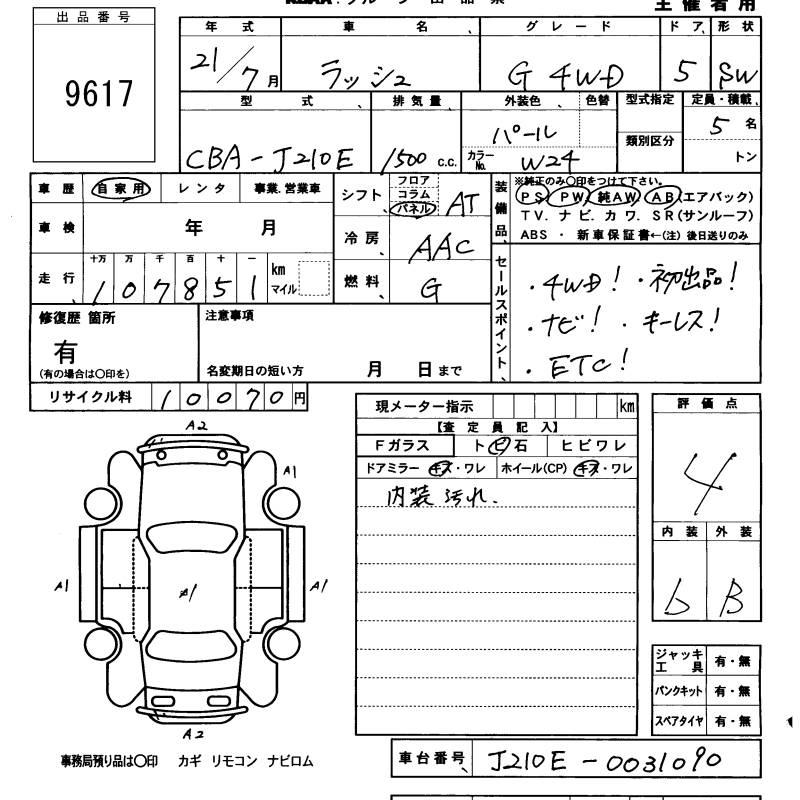 主催者用
出品番号
9617
年式 車名 グレード ドア 形状
21/7月 ラッシュ G 4WD 5 SW
型式 排気量 外装色 色替 型式指定 定員・積載
CBA-J210E 1500 c.c. パール 5名
カラーNo. W24 類別区分 トン
車歴 自家用 レンタ 事業.営業車
シフト フロア コラム パネル AT
装備品 ※純正のみ○印をつけて下さい。
PS PW 純AW AB(エアバック)
TV. ナビ. カワ. SR(サンルーフ)
ABS ・ 新車保証書←(注) 後日送りのみ
車検 年 月
冷房 AAC
走行 十万 万 千 百 十 一
107851 km マイル
燃料 G
セールスポイント
・4WD! ・初出品!
・ナビ! ・キーレス!
・ETC!
修復歴 箇所
有
(有の場合は○印を)
注意事項
名変期日の短い方 月 日まで
リサイクル料 10070円
現メーター指示 km
【査定員記入】
Fガラス ト ビ 石 ヒビワレ
ドアミラー キズ・ワレ ホイール(CP) キズ・ワレ
内装汚れ.
評価点
4
内装 外装
b B
A2
A1
A1 A1 A1
A2
ジャッキ工具 有・無
パンクキット 有・無
スペアタイヤ 有・無
事務局預り品は○印 カギ リモコン ナビロム
車台番号 J210E-0031090